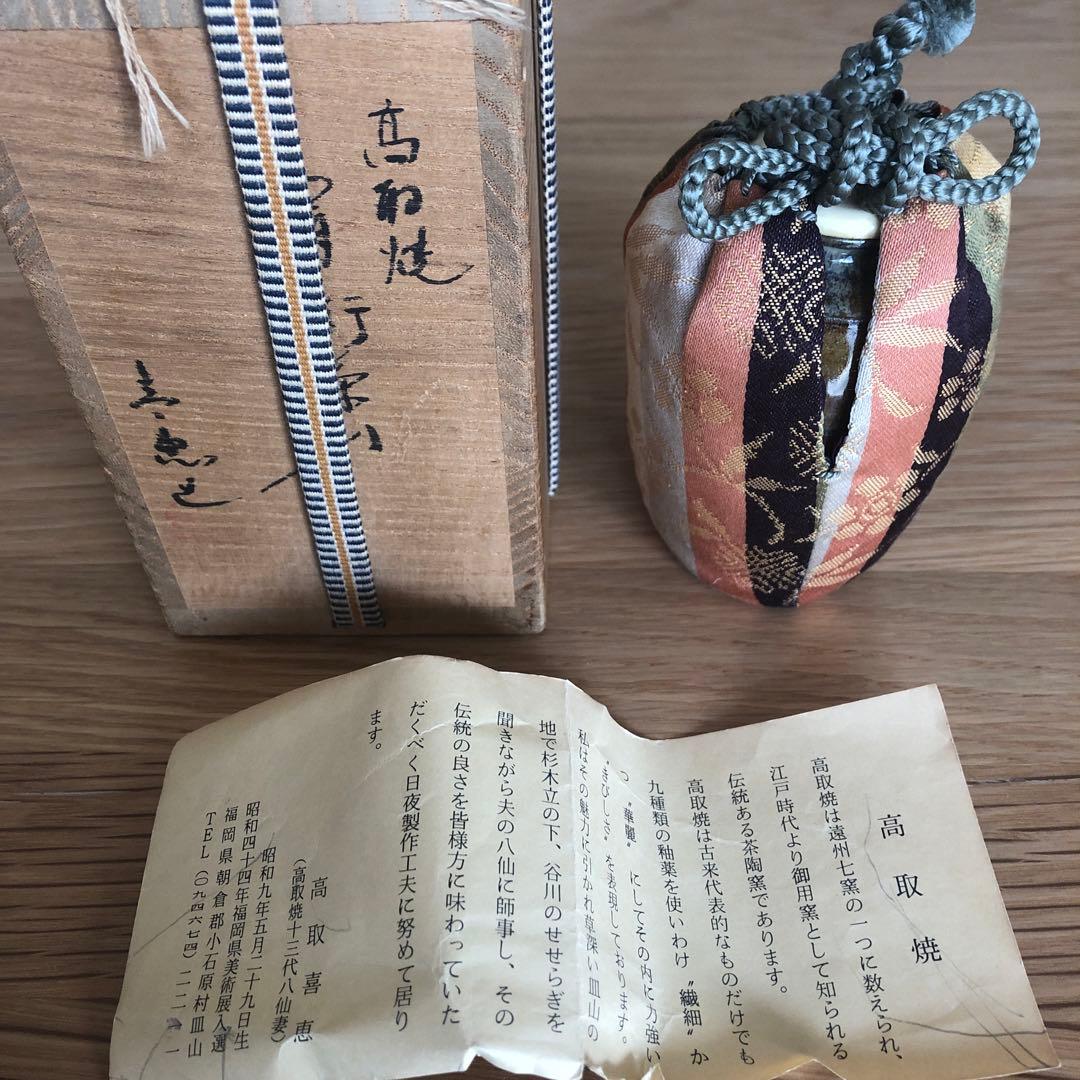 高取焼
喜恵造
高取焼
高取焼は遠州七窯の一つに数えられ、
江戸時代より御用窯として知られる
伝統ある茶陶窯であります。
高取焼は古来代表的なものだけでも
九種類の釉薬を使いわけ〝繊細〟か
つ〝華麗〟にしてその内に力強い
〝きびしさ〟を表現しております。
私はその魅力に引かれ草深い皿山の
地で杉木立の下、谷川のせせらぎを
聞きながら夫の八仙に師事し、その
伝統の良さを皆様方に味わっていた
だくべく日夜製作工夫に努めて居り
ます。
高取喜恵
(高取焼十三代八仙妻)
昭和九年五月二十九日生
昭和四十四年福岡県美術展入選
福岡県朝倉郡小石原村皿山